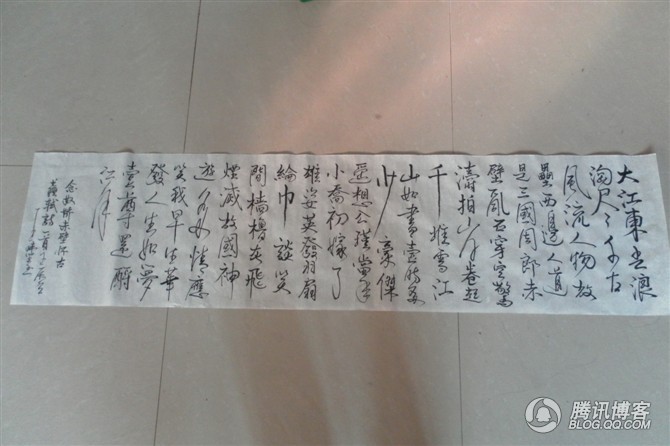 大江東去浪
淘尽千古
风流人物故
壘西邊人道
是三國周郎赤
壁亂石穿空驚
濤拍岸卷起
千堆雪江
山如畫壹時多
少豪傑
遥想公瑾當年
小喬初嫁了
雄姿英發羽扇
綸巾談笑
間樯櫓灰飛
煙滅故國神
遊多情應
笑我早生華
發人生如夢
壹尊還酹
江月
念奴娇赤壁怀古
蘇軾詞
腾讯博客
BLOG.QQ.COM